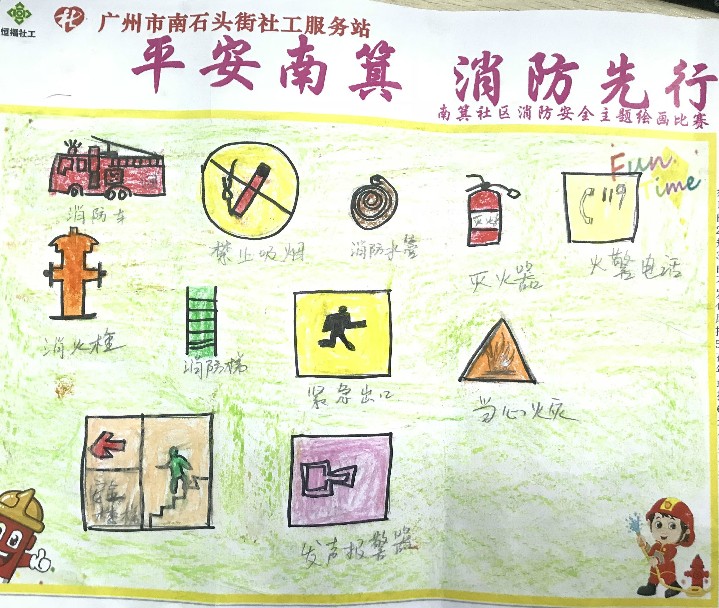 恒福社工
广州市南石头街社工服务站
平安南箕 消防先行
南箕社区消防安全主题绘画比赛
Fun
Time
消防车
禁止吸烟
消防水管
灭火
灭火器
119
火警电话
消火栓
消防梯
紧急出口
当心火灾
发声报警器